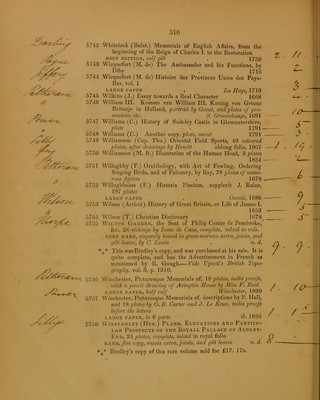 316
Darling
5742 Whitelock (Bulst.) Memorials of English Affairs, from the
beginning of the Reign of Charles I. to the Restoration
BEST EDITION, calf gilt 1732
2 . 11
Payne
5743 Wicquefort (M. de) The Ambassador and his Functions, by
Digby 1716
2
5744 Wicquefort (M. de) Histoire des Provinces Unies des Pays-
Bas, vol. I
LARGE PAPER La Haye, 1719
3
5745 Wilkins (J.) Essay towards a Real Character 1668
4
5746 William III. Komste van William III. Koning van Groote
Britanje in Holland, portrait by Gunst, and plates of pro-
cessions, etc. S' Gravenhage, 1691
5747 Williams (C.) History of Sudeley Castle in Gloucestershire,
plate 1791
5748 Williams (C.) Another copy, plate, uncut 1791
5749 Williamson (Cap. Tho.) Oriental Field Sports, 40 coloured
plates, after drawings by Howitt oblong folio, 1807
1 . 19
5750 Williamson (M. R.) Illustration of the Human Head, 3 plates
1834
2
5751 Willughby (F.) Ornithology, with Art of Fowling, Ordering
Singing Birds, and of Falconry, by Ray, 78 plates of nume-
rous figures 1678
6
5752 Willughbeius (F.) Historia Piscium, supplevit J. Raius,
187 plates
LARGE PAPER Oxonii, 1686
9
Wilson
5753 Wilson (Arthur) History of Great Britain, or Life of James I.
1653
5754 Wilson (T.) Christian Dictionary 1678
5
Thorpe
5755 WILTON GARDEN, the Seat of Philip Comte de Pembroke,
&c. 26 etchings by Isaac de Caus, complete, inlaid in colo.
VERY RARE, elegantly bound in green morocco extra, joints, and
gilt leaves, by C. Lewis n. d.
9 . 9 .
*** This was Bindley's copy, and was purchased at his sale. It is
quite complete, and has the Advertisement in French as
mentioned by R. Gough.—Vide Upcott's British Topo-
graphy, vol. 3, p. 1310.
5756 Winchester, Picturesque Memorials of, 10 plates, india proofs,
with a pencil drawing of Avington House by Miss F. Reed
LARGE PAPER, half calf Winchester, 1830
1 . 10
5757 Winchester, Picturesque Memorials of, descriptions by P. Hall,
and 18 plates by O. B. Carter and J. Le Keux, india proofs
before the letters
LARGE PAPER, in 6 parts ib. 1830
5758 WINSTANLEY (HEN.) PLANS, ELEVATIONS AND PARTICU-
LAR PROSPECTS OF THE ROYALL PALLACE OF AUDLEY-
END, 24 plates, complete, inlaid in royal folio
RARE, fine copy, russia extra, joints, and gilt leaves n. d.
8
*** Bindley's copy of this rare volume sold for £17. 17s.